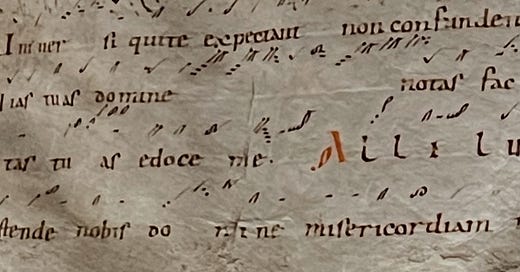 Inner si qui te expectant non confunden
uias tuas domine notas fac
tas tu as edoce me. All i lu
stende nobis do mi ne misericordiam